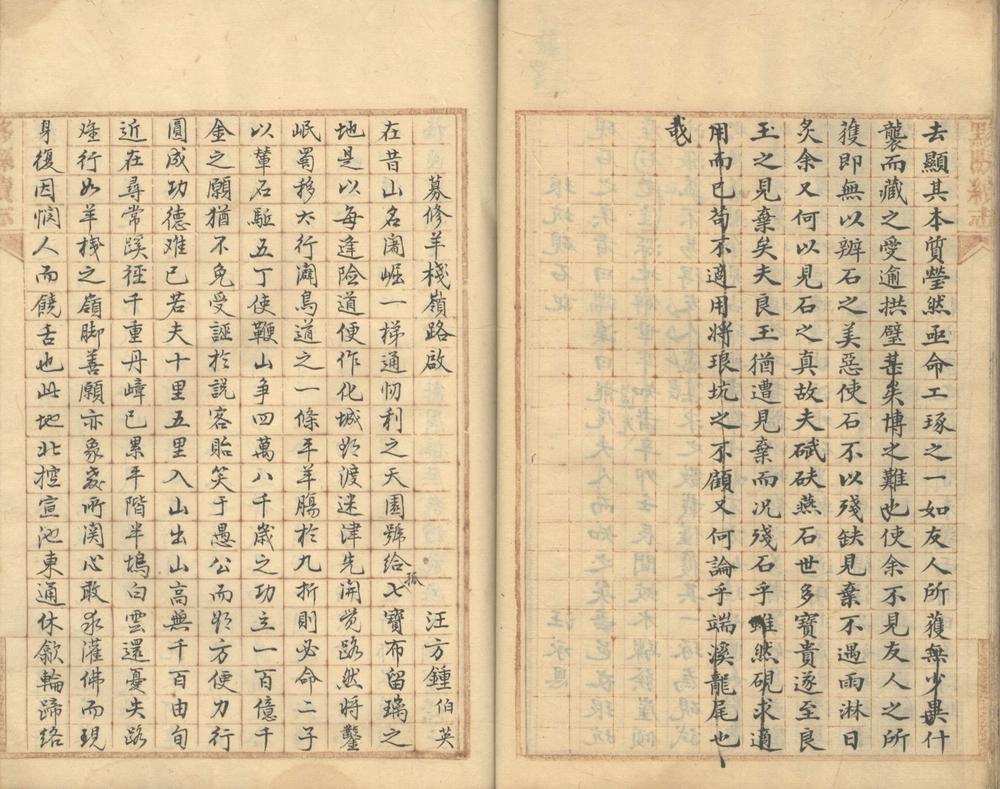 去顯其本質瑩然亟命工琢之一如友人所獲無少異什
襲而藏之愛逾拱璧甚矣博之難也使余不見友人之所
獲即無以辨石之美惡使石不以殘缺見棄不遇雨淋日
炙余又何以見石之真故夫碔砆燕石世多寶貴遂至良
玉之見棄矣夫良玉猶遭見棄而况殘石乎雖然硯求適
用而已苟不適用將琅坑之不顧又何論乎端溪龍尾也
哉
募修羊棧嶺路啟
汪方鍾伯英
在昔山名闍崛一梯通忉利之天園號給孤七寶布留璃之
地是以每逢險道便作化城欲渡迷津先開覺路然將鑿
岷蜀移太行闢鳥道之一條平羊腸於九折則必命二子
以輦石駈五丁使鞭山爭四萬八千歲之功立一百億千
金之願猶不免受誣於說客貽笑于愚公而欲方便力行
圓成功德难已若夫十里五里入山出山高無千百由旬
近在尋常蹊徑千重丹嶂已累平階半塢白雲還憂失路
难行如羊棧之嶺脚善願亦象教所関心敢求灌佛而現
身復因憫人而饒舌也此地北控宣池東通休歙輪蹄絡